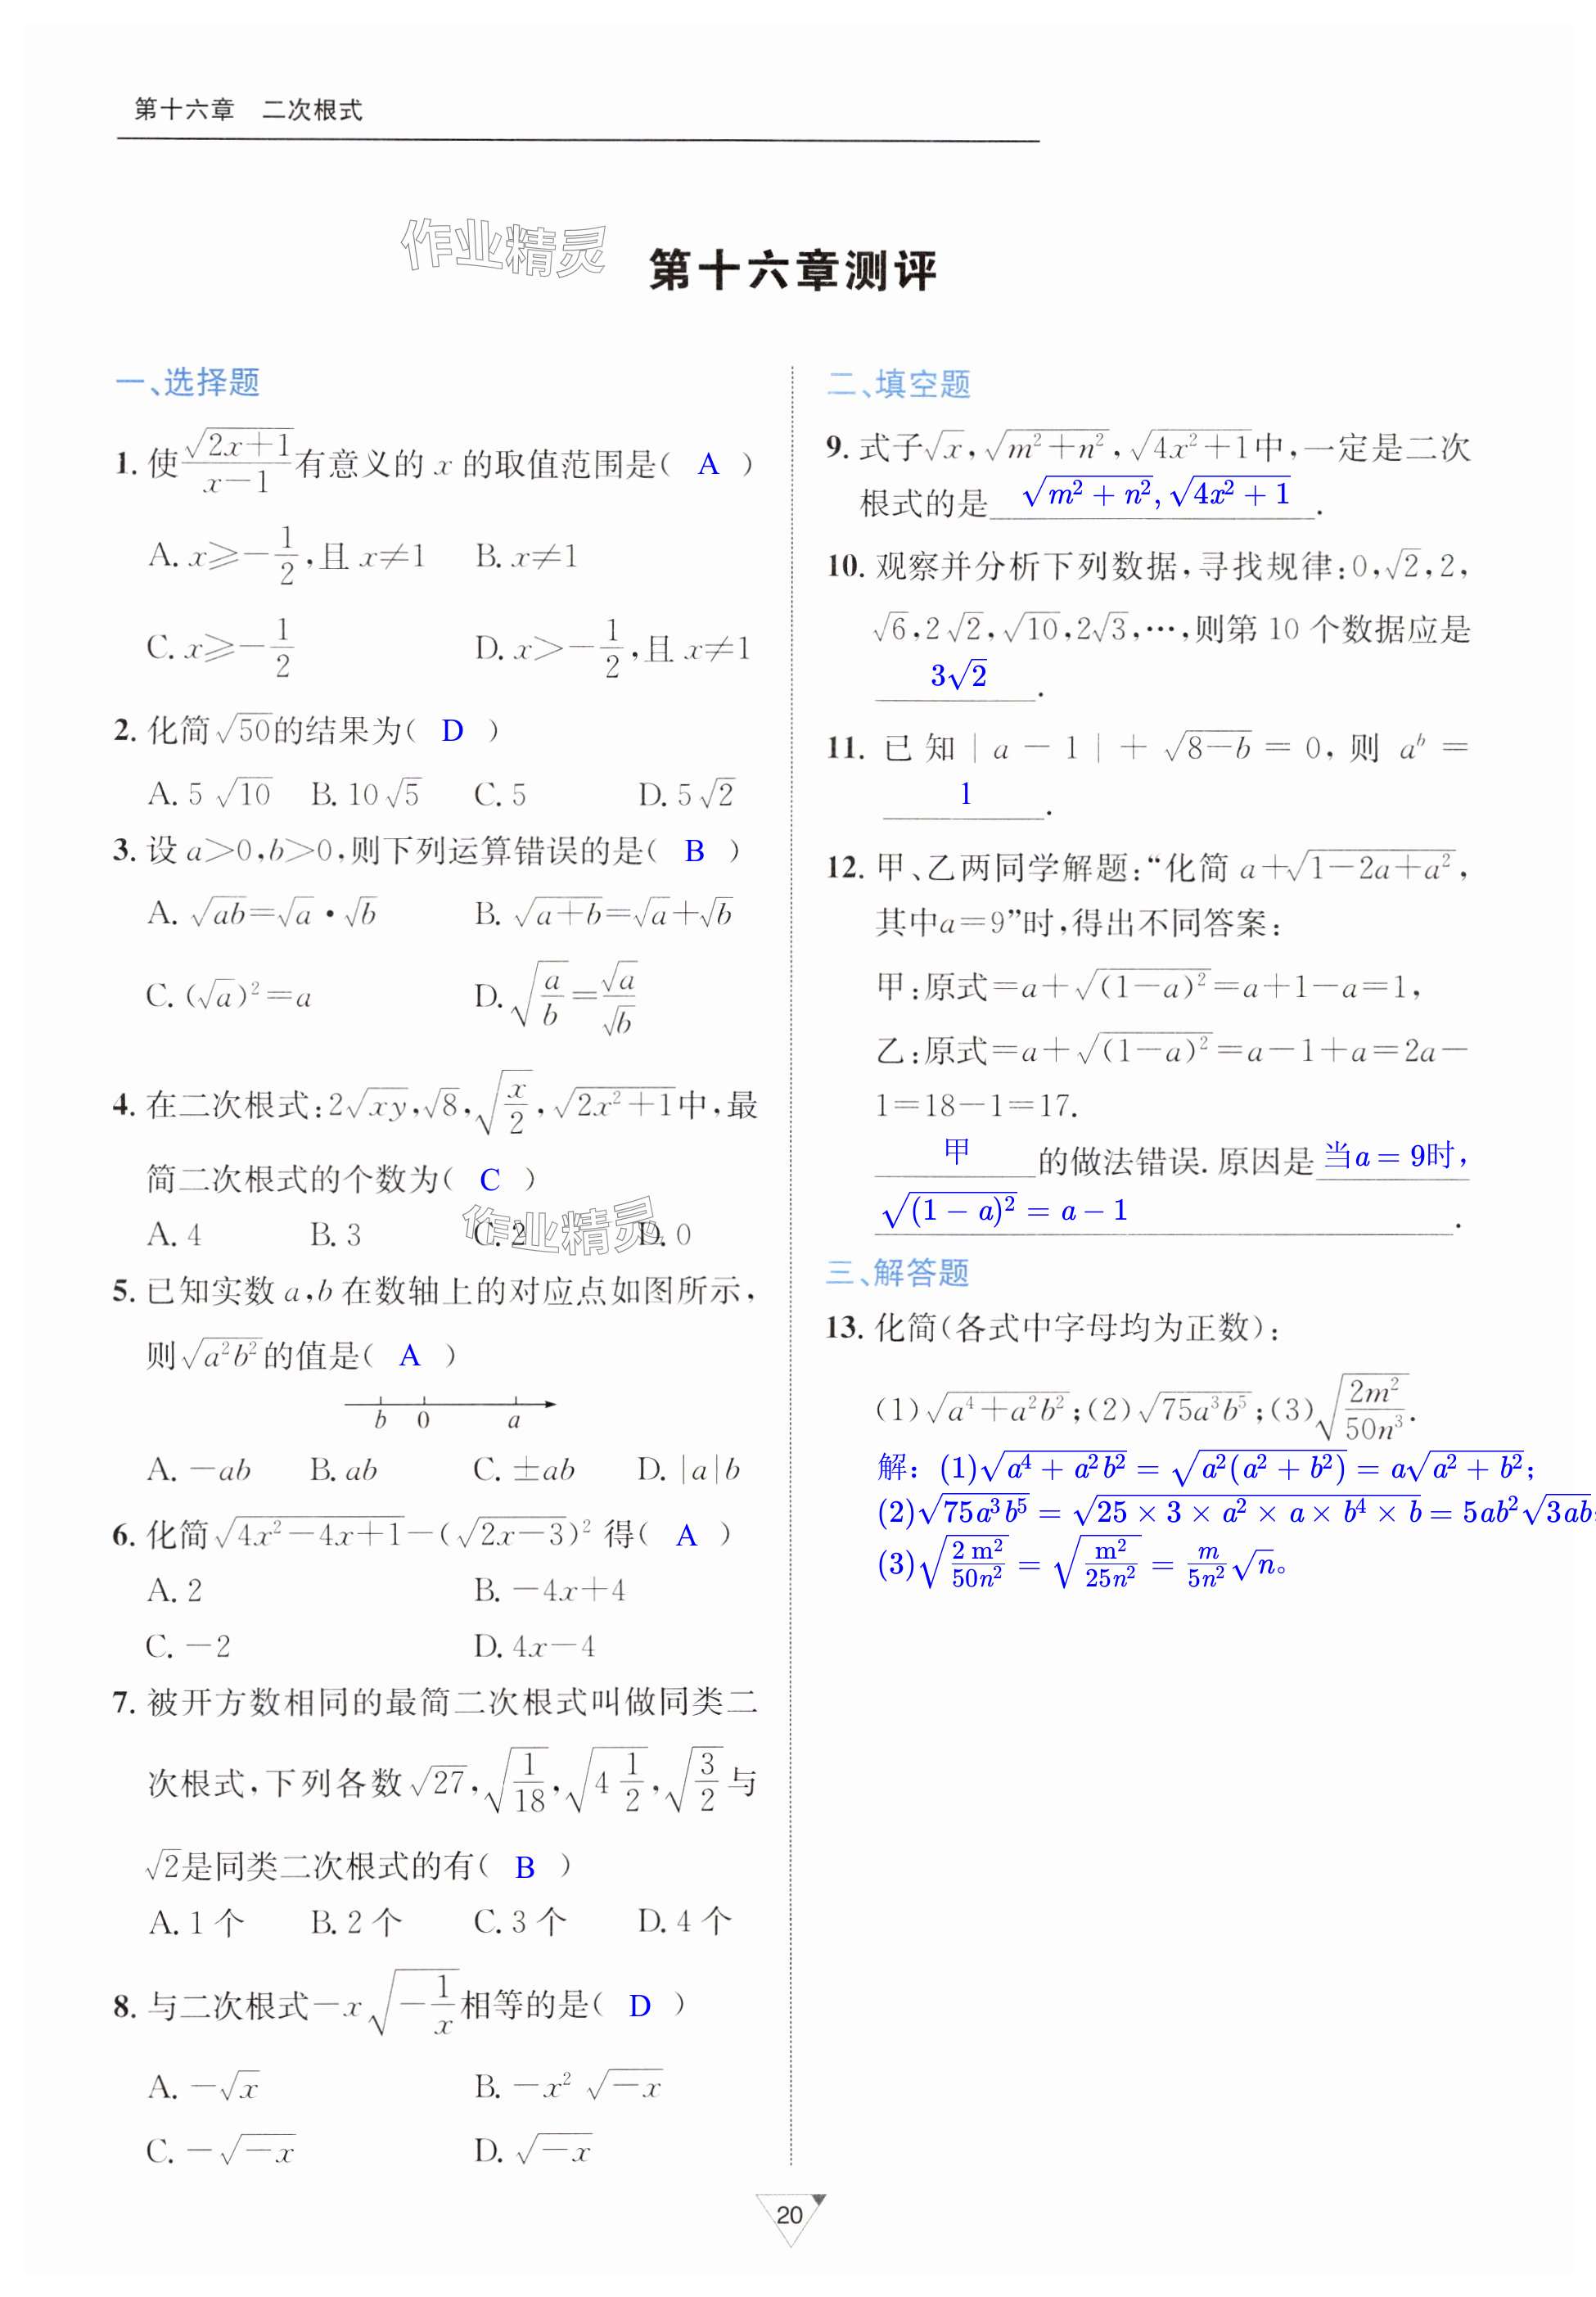 第十六章　二次根式
作业精灵
第十六章测评
一、选择题
1. 使$\frac{\sqrt{2x+1}}{x-1}$有意义的 x 的取值范围是( A )
A. $x⩾-\frac{1}{2}$,且 $x≠1$　B. $x≠1$
C. $x⩾-\frac{1}{2}$　D. $x>-\frac{1}{2}$,且 $x≠1$
2. 化简$\sqrt{50}$的结果为( D )
A. $5\sqrt{10}$　B. $10\sqrt{5}$　C. 5　D. $5\sqrt{2}$
3. 设 a>0,b>0,则下列运算错误的是( B )
A. $\sqrt{ab}=\sqrt{a}·\sqrt{b}$　B. $\sqrt{a+b}=\sqrt{a}+\sqrt{b}$
C. $(\sqrt{a})^2=a$　D. $\sqrt{\frac{a}{b}}=\frac{\sqrt{a}}{\sqrt{b}}$
4. 在二次根式:$2\sqrt{xy}$,$\sqrt{8}$,$\sqrt{\frac{x}{2}}$,$\sqrt{2x^2+1}$中,最
简二次根式的个数为( C )
A. 4　B. 3　C. 2　D. 0
作业精灵
5. 已知实数 a,b 在数轴上的对应点如图所示,
则$\sqrt{a^2b^2}$的值是( A )
b　0　a
A. $-ab$　B. $ab$　C. $±ab$　D. $|a|b$
6. 化简$\sqrt{4x^2-4x+1}-(\sqrt{2x-3})^2$ 得( A )
A. 2　B. $-4x+4$
C. $-2$　D. $4x-4$
7. 被开方数相同的最简二次根式叫做同类二
次根式,下列各数$\sqrt{27}$,$\sqrt{\frac{1}{18}}$,$\sqrt{4\frac{1}{2}}$,$\sqrt{\frac{3}{2}}$与
$\sqrt{2}$是同类二次根式的有( B )
A. 1 个　B. 2 个　C. 3 个　D. 4 个
8. 与二次根式$-x\sqrt{-\frac{1}{x}}$相等的是( D )
A. $-\sqrt{x}$　B. $-x^2\sqrt{-x}$
C. $-\sqrt{-x}$　D. $\sqrt{-x}$
二、填空题
9. 式子$\sqrt{x}$,$\sqrt{m^2+n^2}$,$\sqrt{4x^2+1}$中,一定是二次
根式的是 $\sqrt{m^2+n^2},\sqrt{4x^2+1}$ .
10. 观察并分析下列数据,寻找规律:0,$\sqrt{2}$,2,
$\sqrt{6}$,$2\sqrt{2}$,$\sqrt{10}$,$2\sqrt{3}$,…,则第 10 个数据应是
$3\sqrt{2}$ .
11. 已知 $|a-1|+\sqrt{8-b}=0$,则 $a^b=$
1 .
12. 甲、乙两同学解题:“化简 $a+\sqrt{1-2a+a^2}$,
其中a=9”时,得出不同答案:
甲:原式$=a+\sqrt{(1-a)^2}=a+1-a=1$,
乙:原式$=a+\sqrt{(1-a)^2}=a-1+a=2a-$
1=18-1=17.
甲 的做法错误. 原因是 当a = 9时，
$\sqrt{(1-a)^2}=a-1$ .
三、解答题
13. 化简(各式中字母均为正数):
(1)$\sqrt{a^4+a^2b^2}$;(2)$\sqrt{75a^3b^5}$;(3)$\sqrt{\frac{2m^2}{50n^3}}$.
解：(1)$\sqrt{a^4+a^2b^2}=\sqrt{a^2(a^2+b^2)}=a\sqrt{a^2+b^2}$;
(2)$\sqrt{75a^3b^5}=\sqrt{25×3×a^2×a×b^4×b}=5ab^2\sqrt{3ab}$;
(3)$\sqrt{\frac{2m^2}{50n^2}}=\sqrt{\frac{m^2}{25n^2}}=\frac{m}{5n^2}\sqrt{n}$。
20